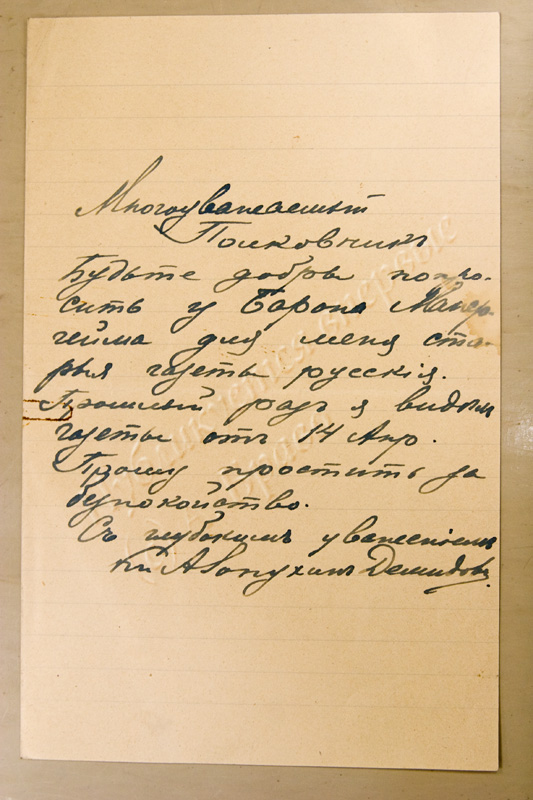 Многоуважаемый
Полковникъ
Будьте добры попро-
сить у Барона Манер-
гейма для меня ста-
рыя газеты русскiя.
Прошлый разъ я видѣлъ
газеты отъ 14 Апр.
Прошу простить за
безпокойство.
Съ глубокимъ уваженiемъ
Кн Лопухинъ Демидовъ.
публикуется впервые